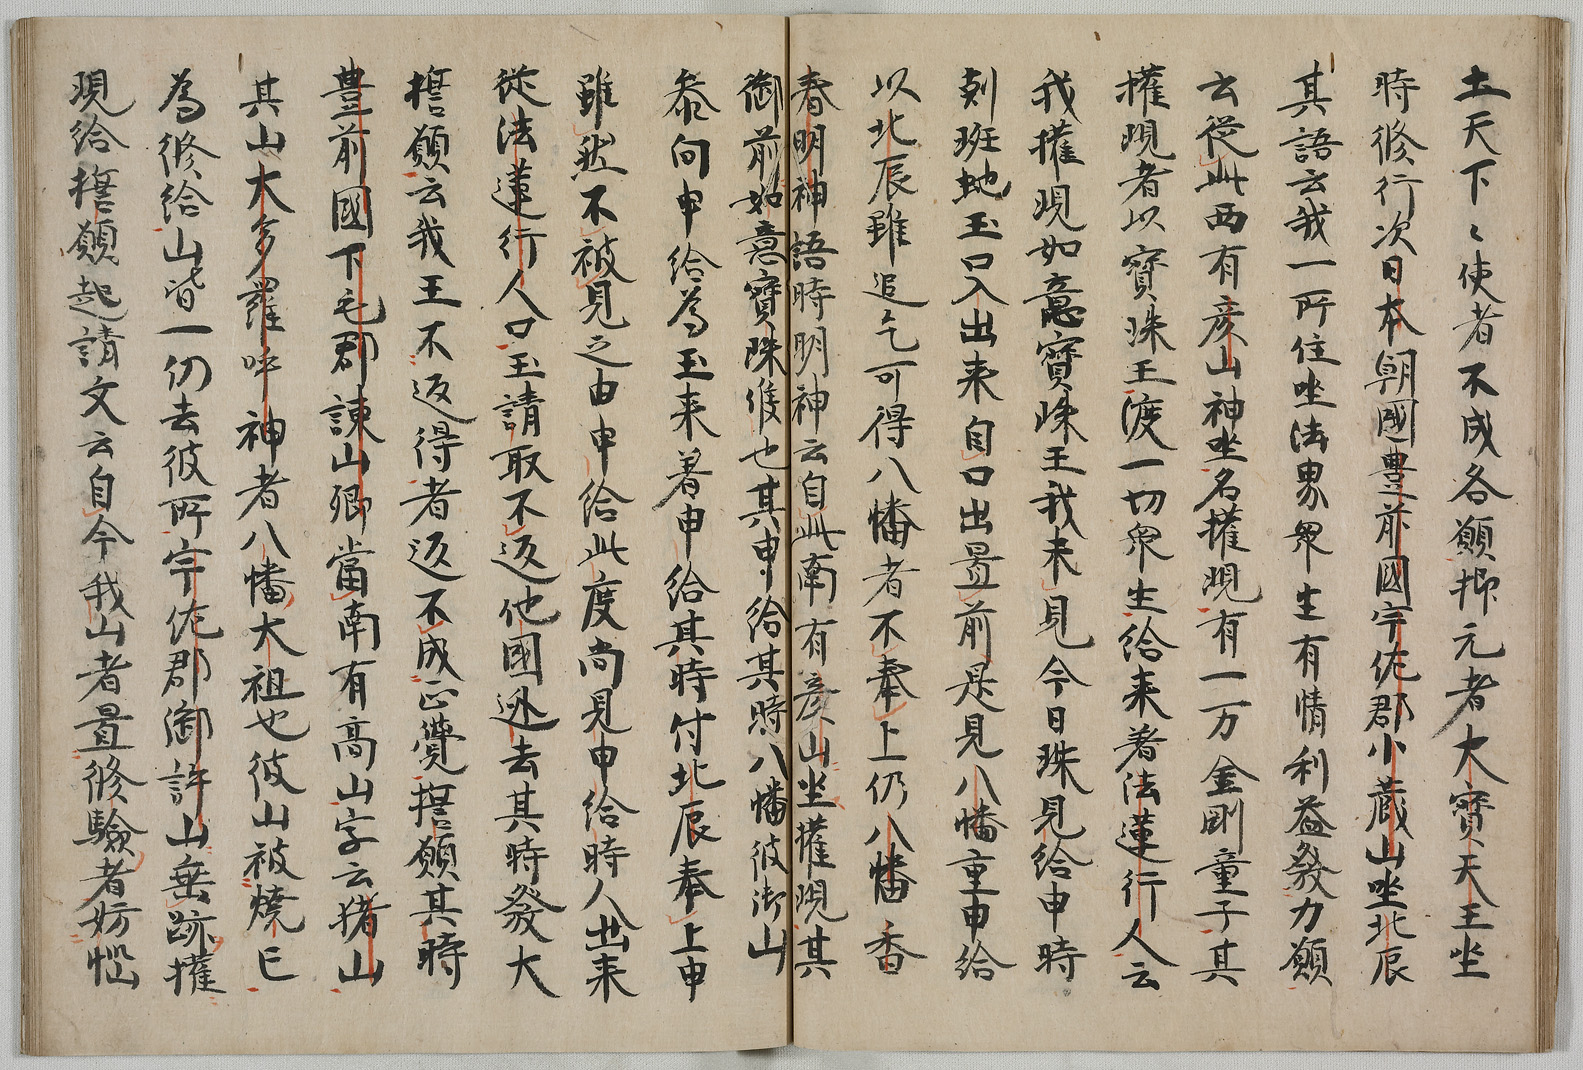 土天下〻使者不成各願抑元者大寳天王坐
時修行次日本朝國豊前國宇佐郡小蔵山坐北辰
其語云我一所住坐法界衆生有情利益發力願
云從此西有彦山神坐名權現有一万金剛童子其
權現者以寳珠玉渡一切衆生給来著法蓮行人云
我權現如意寳珠王我未見今日珠見給申時
剋班虵玉口入出来自口出置前是見八幡重申給
以北辰雖追乞可得八幡者不奉上仍八幡香
春明神語時明神云自此南有彦山坐權現其
御前如意寳珠隻也其申給其時八幡彼御山
忝向申給為玉来著申給其時付北辰奉上申
雖然不被見之由申給此度尚見申給時人出来
從法蓮行人口玉請取不返他國逃去其時發大
誓願云我王不返得者返不成正覺誓願其時
豊前國下毛郡諫山郷當南有高山字云猪山
其山大多羅呼神者八幡大祖也彼山被燒已
為修給山皆一仞去彼所宇佐郡御許山垂跡權
現給誓願起請文云自今我山者置修驗者妨惱